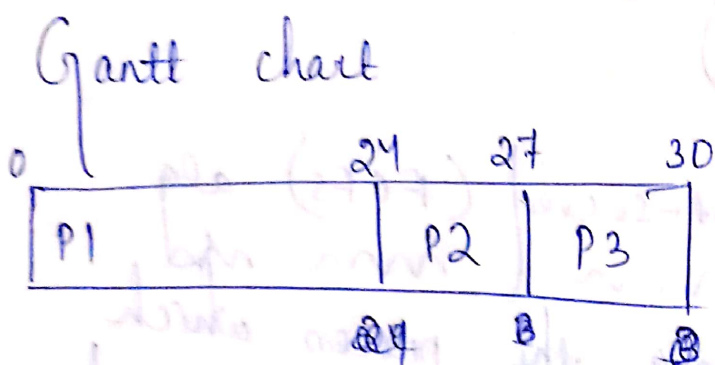 Gantt chart
0 24 27 30
P1 P2 P3